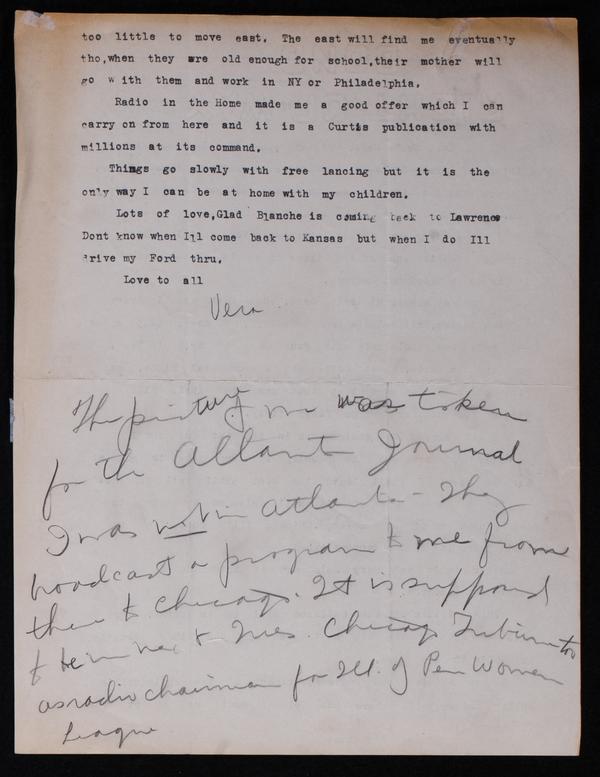 too little to move east. The east will find me eventually
tho,when they are old enough for school,their mother will
go with them and work in NY or Philadelphia.
Radio in the Home made me a good offer which I can
carry on from here and it is a Curtis publication with
millions at its command.
Things go slowly with free lancing but it is the
only way I can be at home with my children.
Lots of love,Glad Blanche is coming back to Lawrence
Dont know when I1l come back to Kansas but when I do I1l
drive my Ford thru.
Love to all
Vera
The picture of me was taken
for the Atlanta Journal
I was not in Atlanta - They
broadcast a program to me from
there to Chicago. It is supposed
to be in next Tues. Chicago Tribune too
as radio chairman for Ill. of Pen Women
League